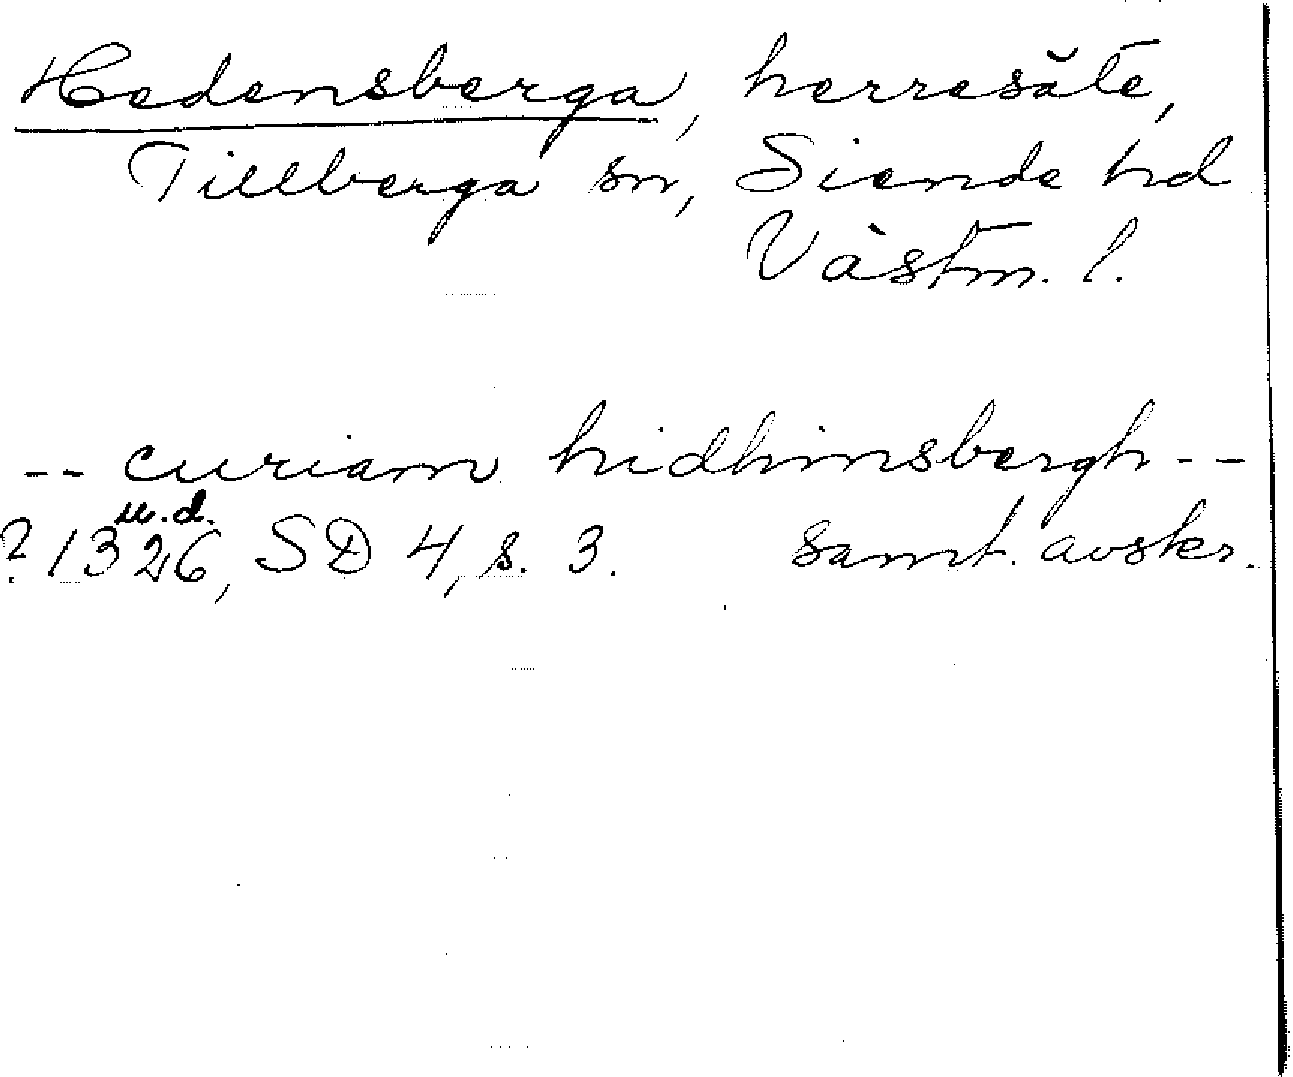 Hedensberga, herresäte,
Tillberga sn, Siende hd
Västm. l.
-- curiam hidhinsbergh --
u.d.
? 1326, SD 4, s. 3. samt. avskr.